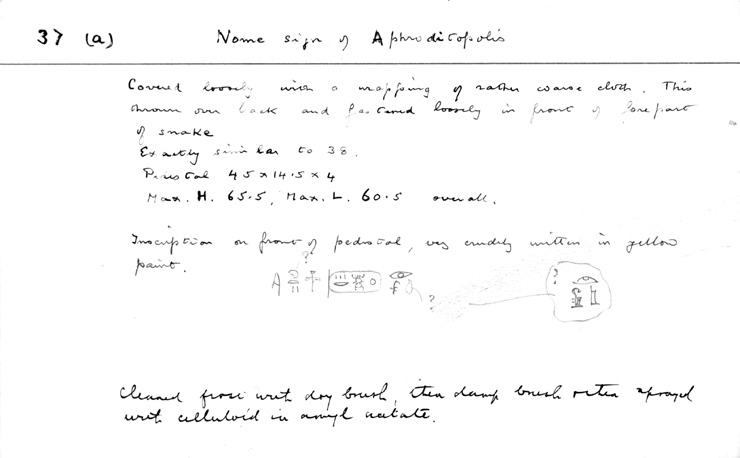 37 (a) Nome sign of Aphroditopolis
Covered loosely with a wrapping of rather coarse cloth. This
thrown over back and fastened loosely in front of forepart
of snake
Exactly similar to 38.
Pedestal 45 x 14.5 x 4
Max. H. 65.5, Max. L. 60.5 overall.
Inscription on front of pedestal, very crudely written in yellow
paint.
?
?
?
Cleaned first with dry brush, then damp brush &
sprayed
with celluloid in amyl acetate.